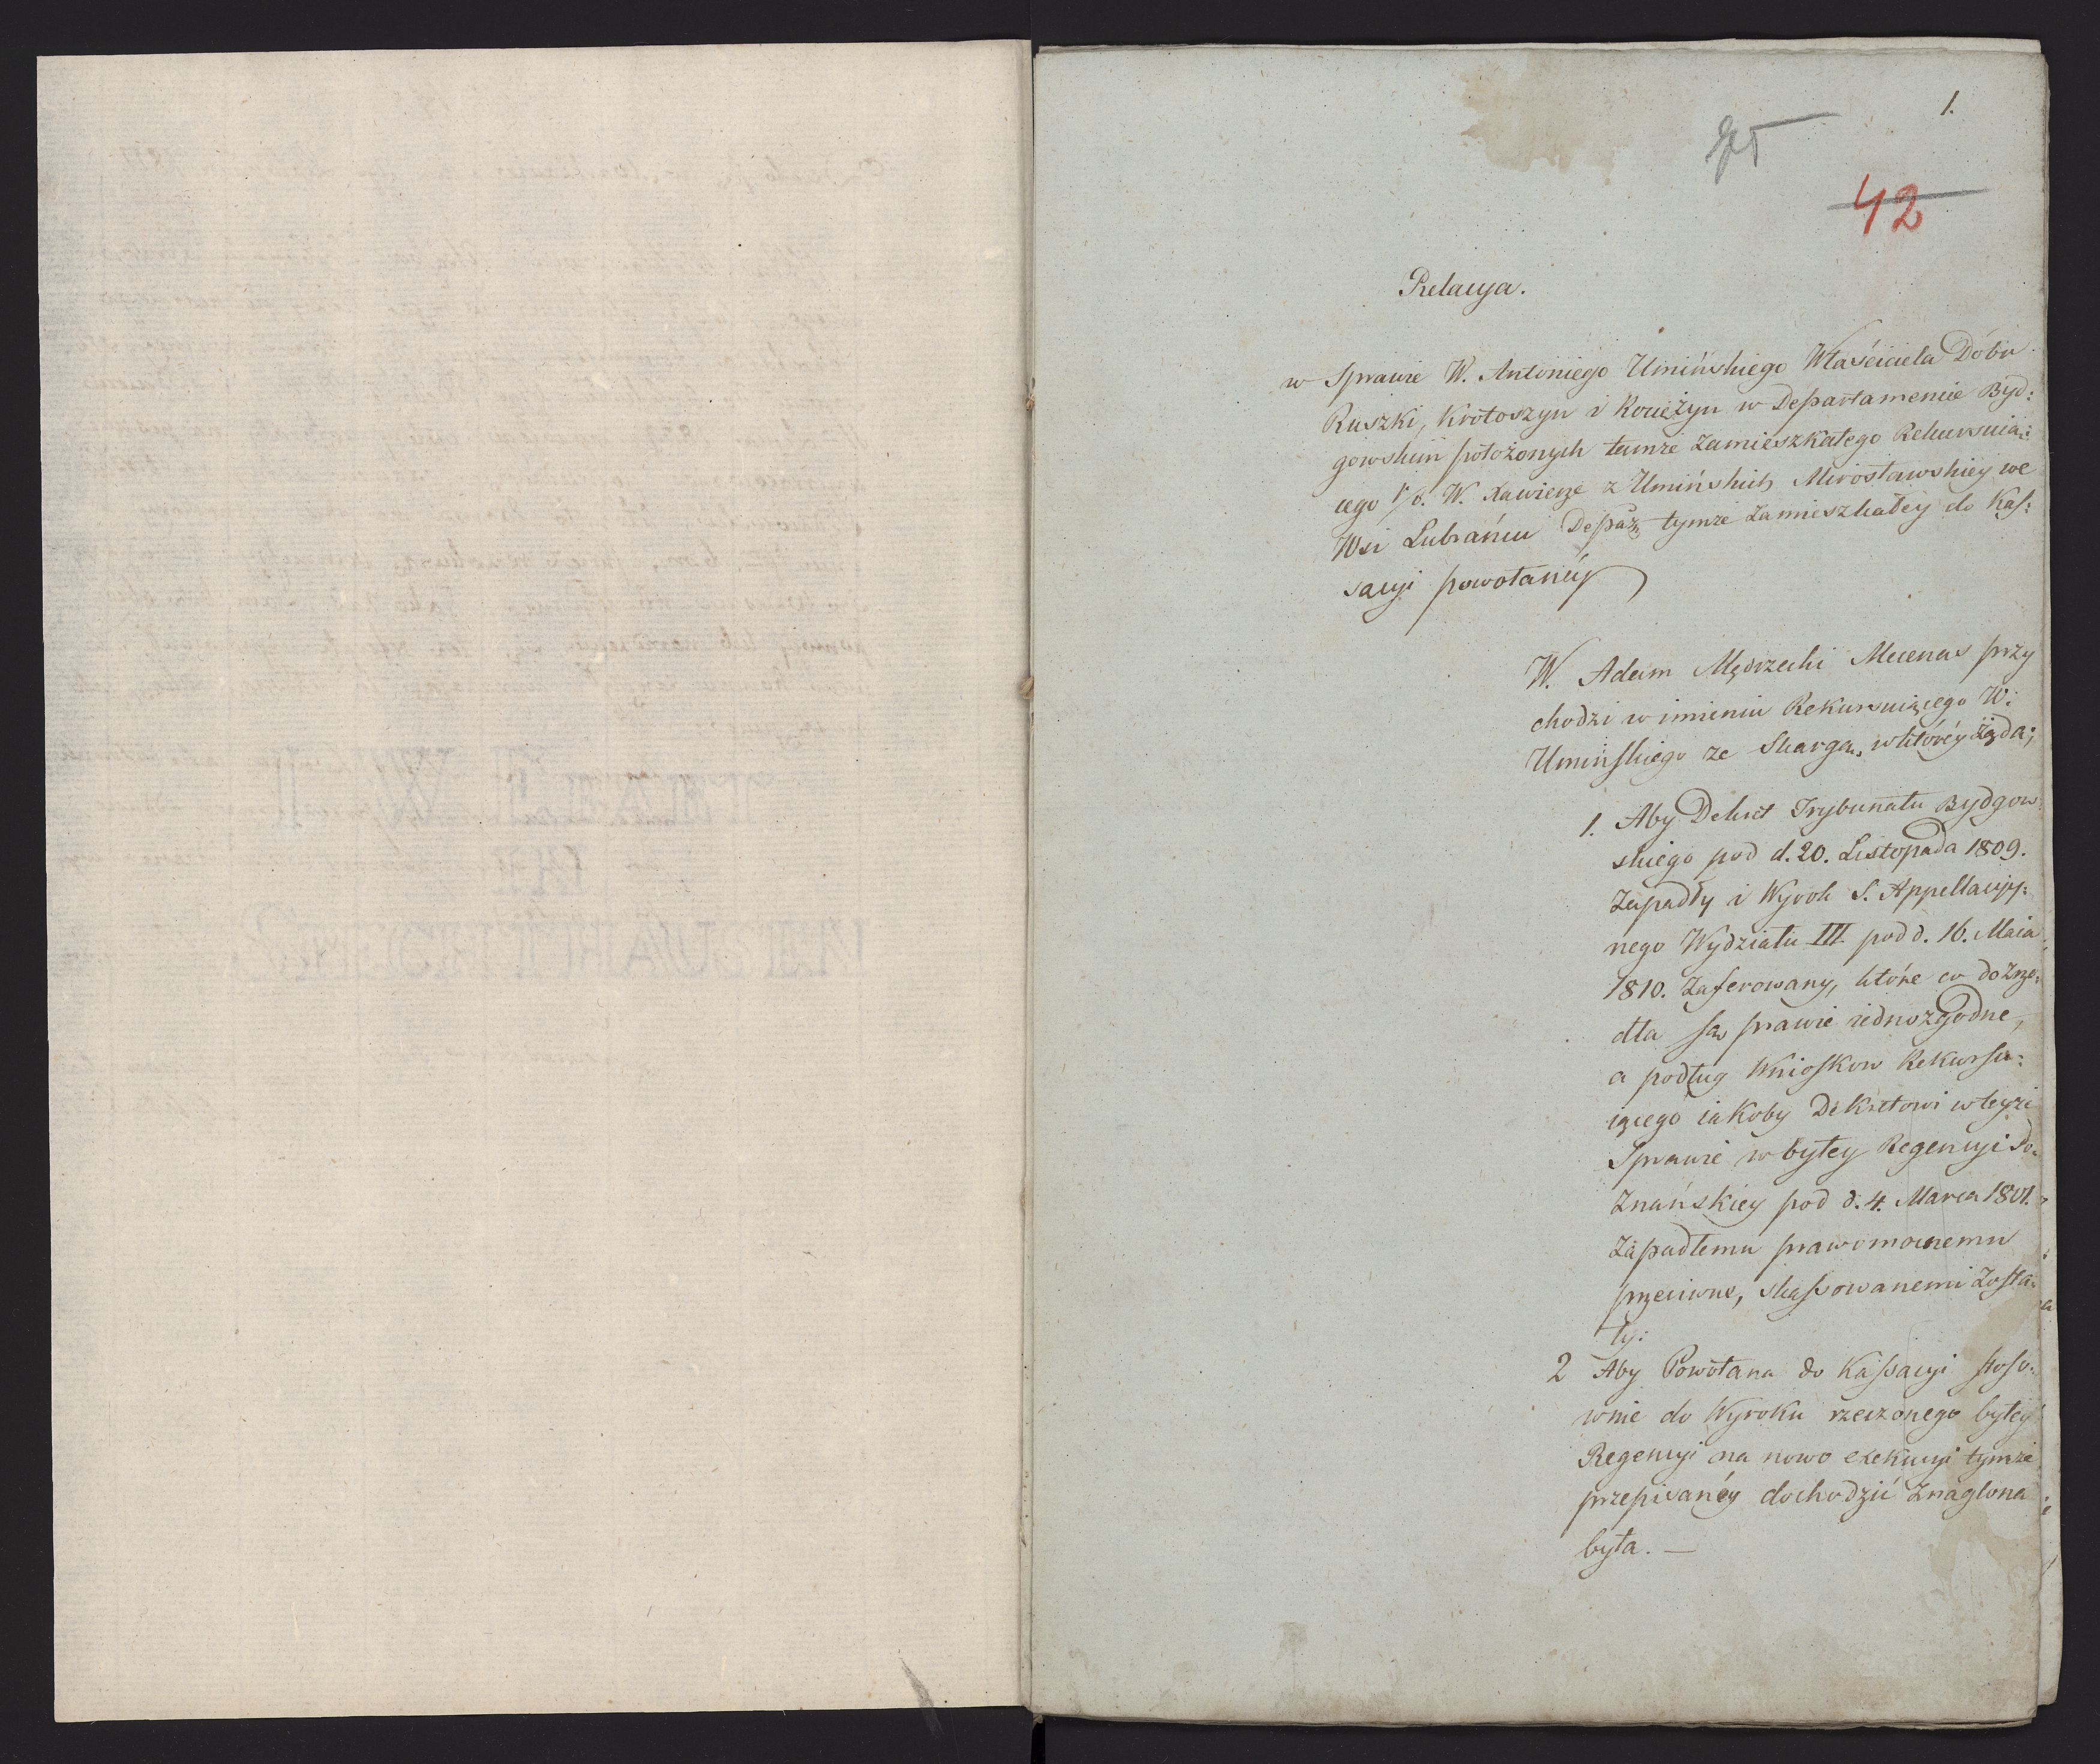 1.
42
Relacya.
w Sprawie W. Antoniego Umińskiego Właściciela Dóbr
Ruszki, Krotoszyn i Kocieżyn w Departamencie Byd:
gowskim położonych tamże zamieszkałego Rekursuią:
cego p/o. W. Xawierze z Umińskich Mirosławskiey we
Wsi Lubrańcu Depar: tymże zamieszkałey do Kas:
sacyi powołanéy
W. Adam Mędrzecki Mecenas przy
chodzi w imieniu Rekursuiącego W:
Umińskiego ze Skargą, wktóréy żąda;
1. Aby Dekret Trybunału Bydgow
skiego pod d. 20. Listopada 1809.
Zapadły i Wyrok S. Appellacyy:
nego Wydziału III. pod d. 16. Maia
1810. Zaferowany, które co do Zrze:
dła są prawie iednozgodne,
a podług Wnioskow Rekursu:
iącego iakoby Dekretowi wteyże
Sprawie w byłey Regencyi Po:
Znańskiey pod d. 4. Marca 1801.
Zapadłemu prawomocnemu
przeciwne, skassowanemi Zosta:
ły:
2 Aby Powołana do Kassacyi stoso:
wnie do Wyroku rzeczonego byłey
Regencyi na nowo exekucyi tymże
przepisanéy dochodzić Znaglona
była. —